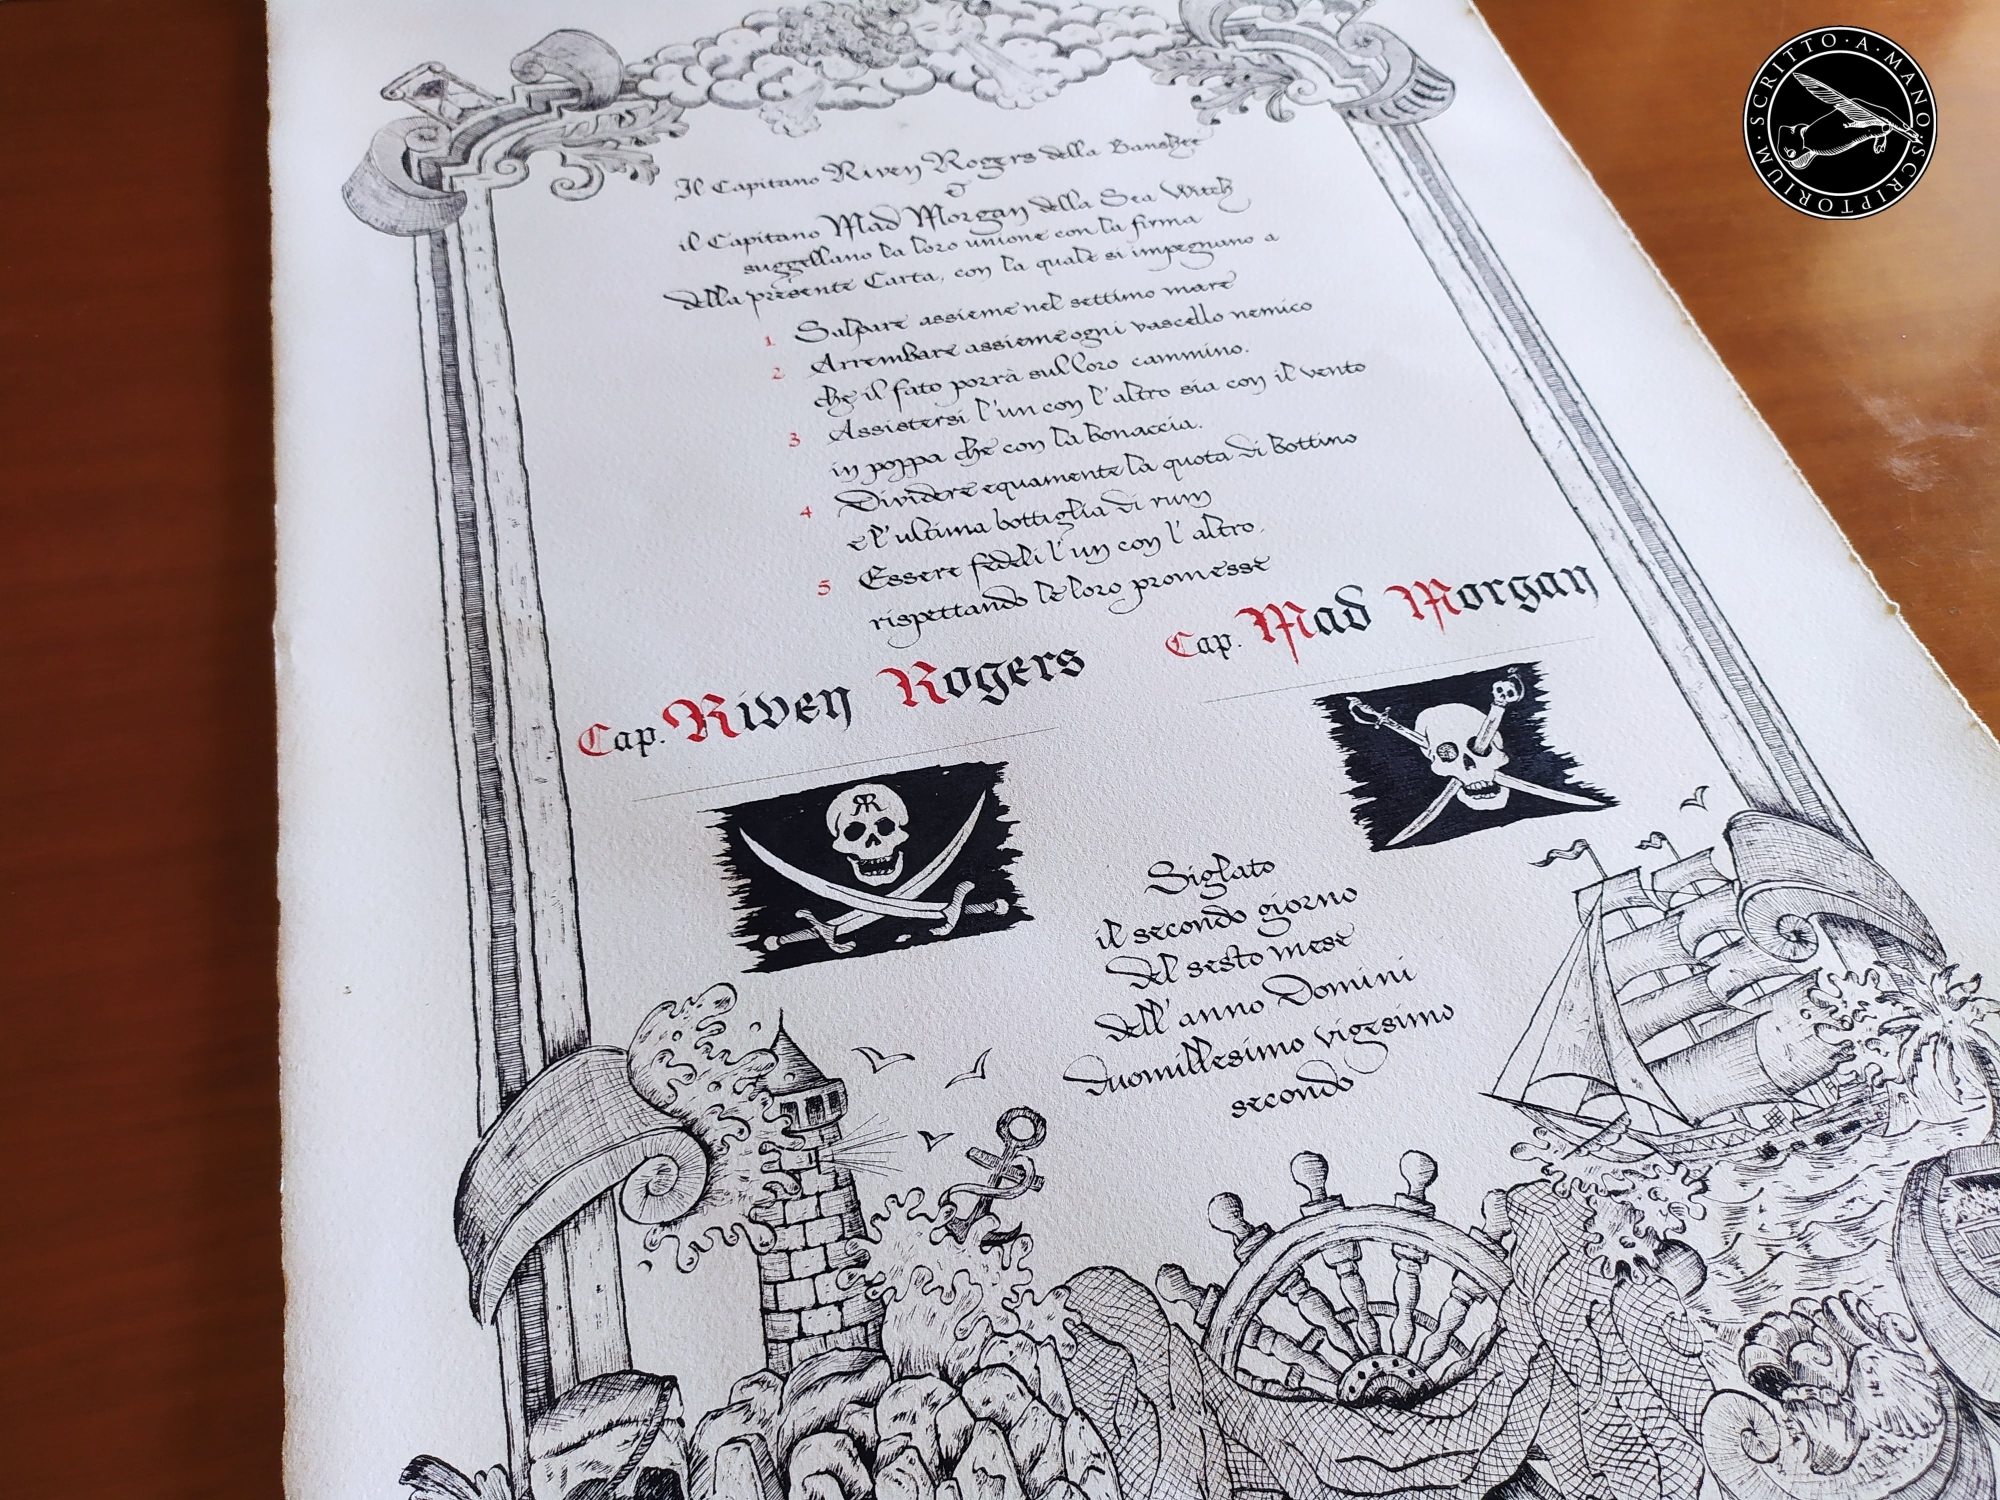 Il Capitano Riven Rogers della Banshee
&
il Capitano Mad Morgan della Sea Witch
suggellano la loro unione con la firma
della presente Carta, con la quale si impegnano a
1 Salpare assieme nel settimo mare
2 Arrembare assieme ogni vascello nemico
che il fato porrà sul loro cammino.
3 Assistersi l'un con l'altro sia con il vento
in poppa che con la bonaccia.
4 Dividere equamente la quota di bottino
e l'ultima bottiglia di rum
5 Essere fedeli l'un con l'altro,
rispettando le loro promesse
Cap. Riven Rogers
Cap. Mad Morgan
RR
Siglato
il secondo giorno
del sesto mese
dell'anno Domini
duomillesimo vigesimo
secondo
SCRITTO · A · MANO · SCRIPTORIUM ·